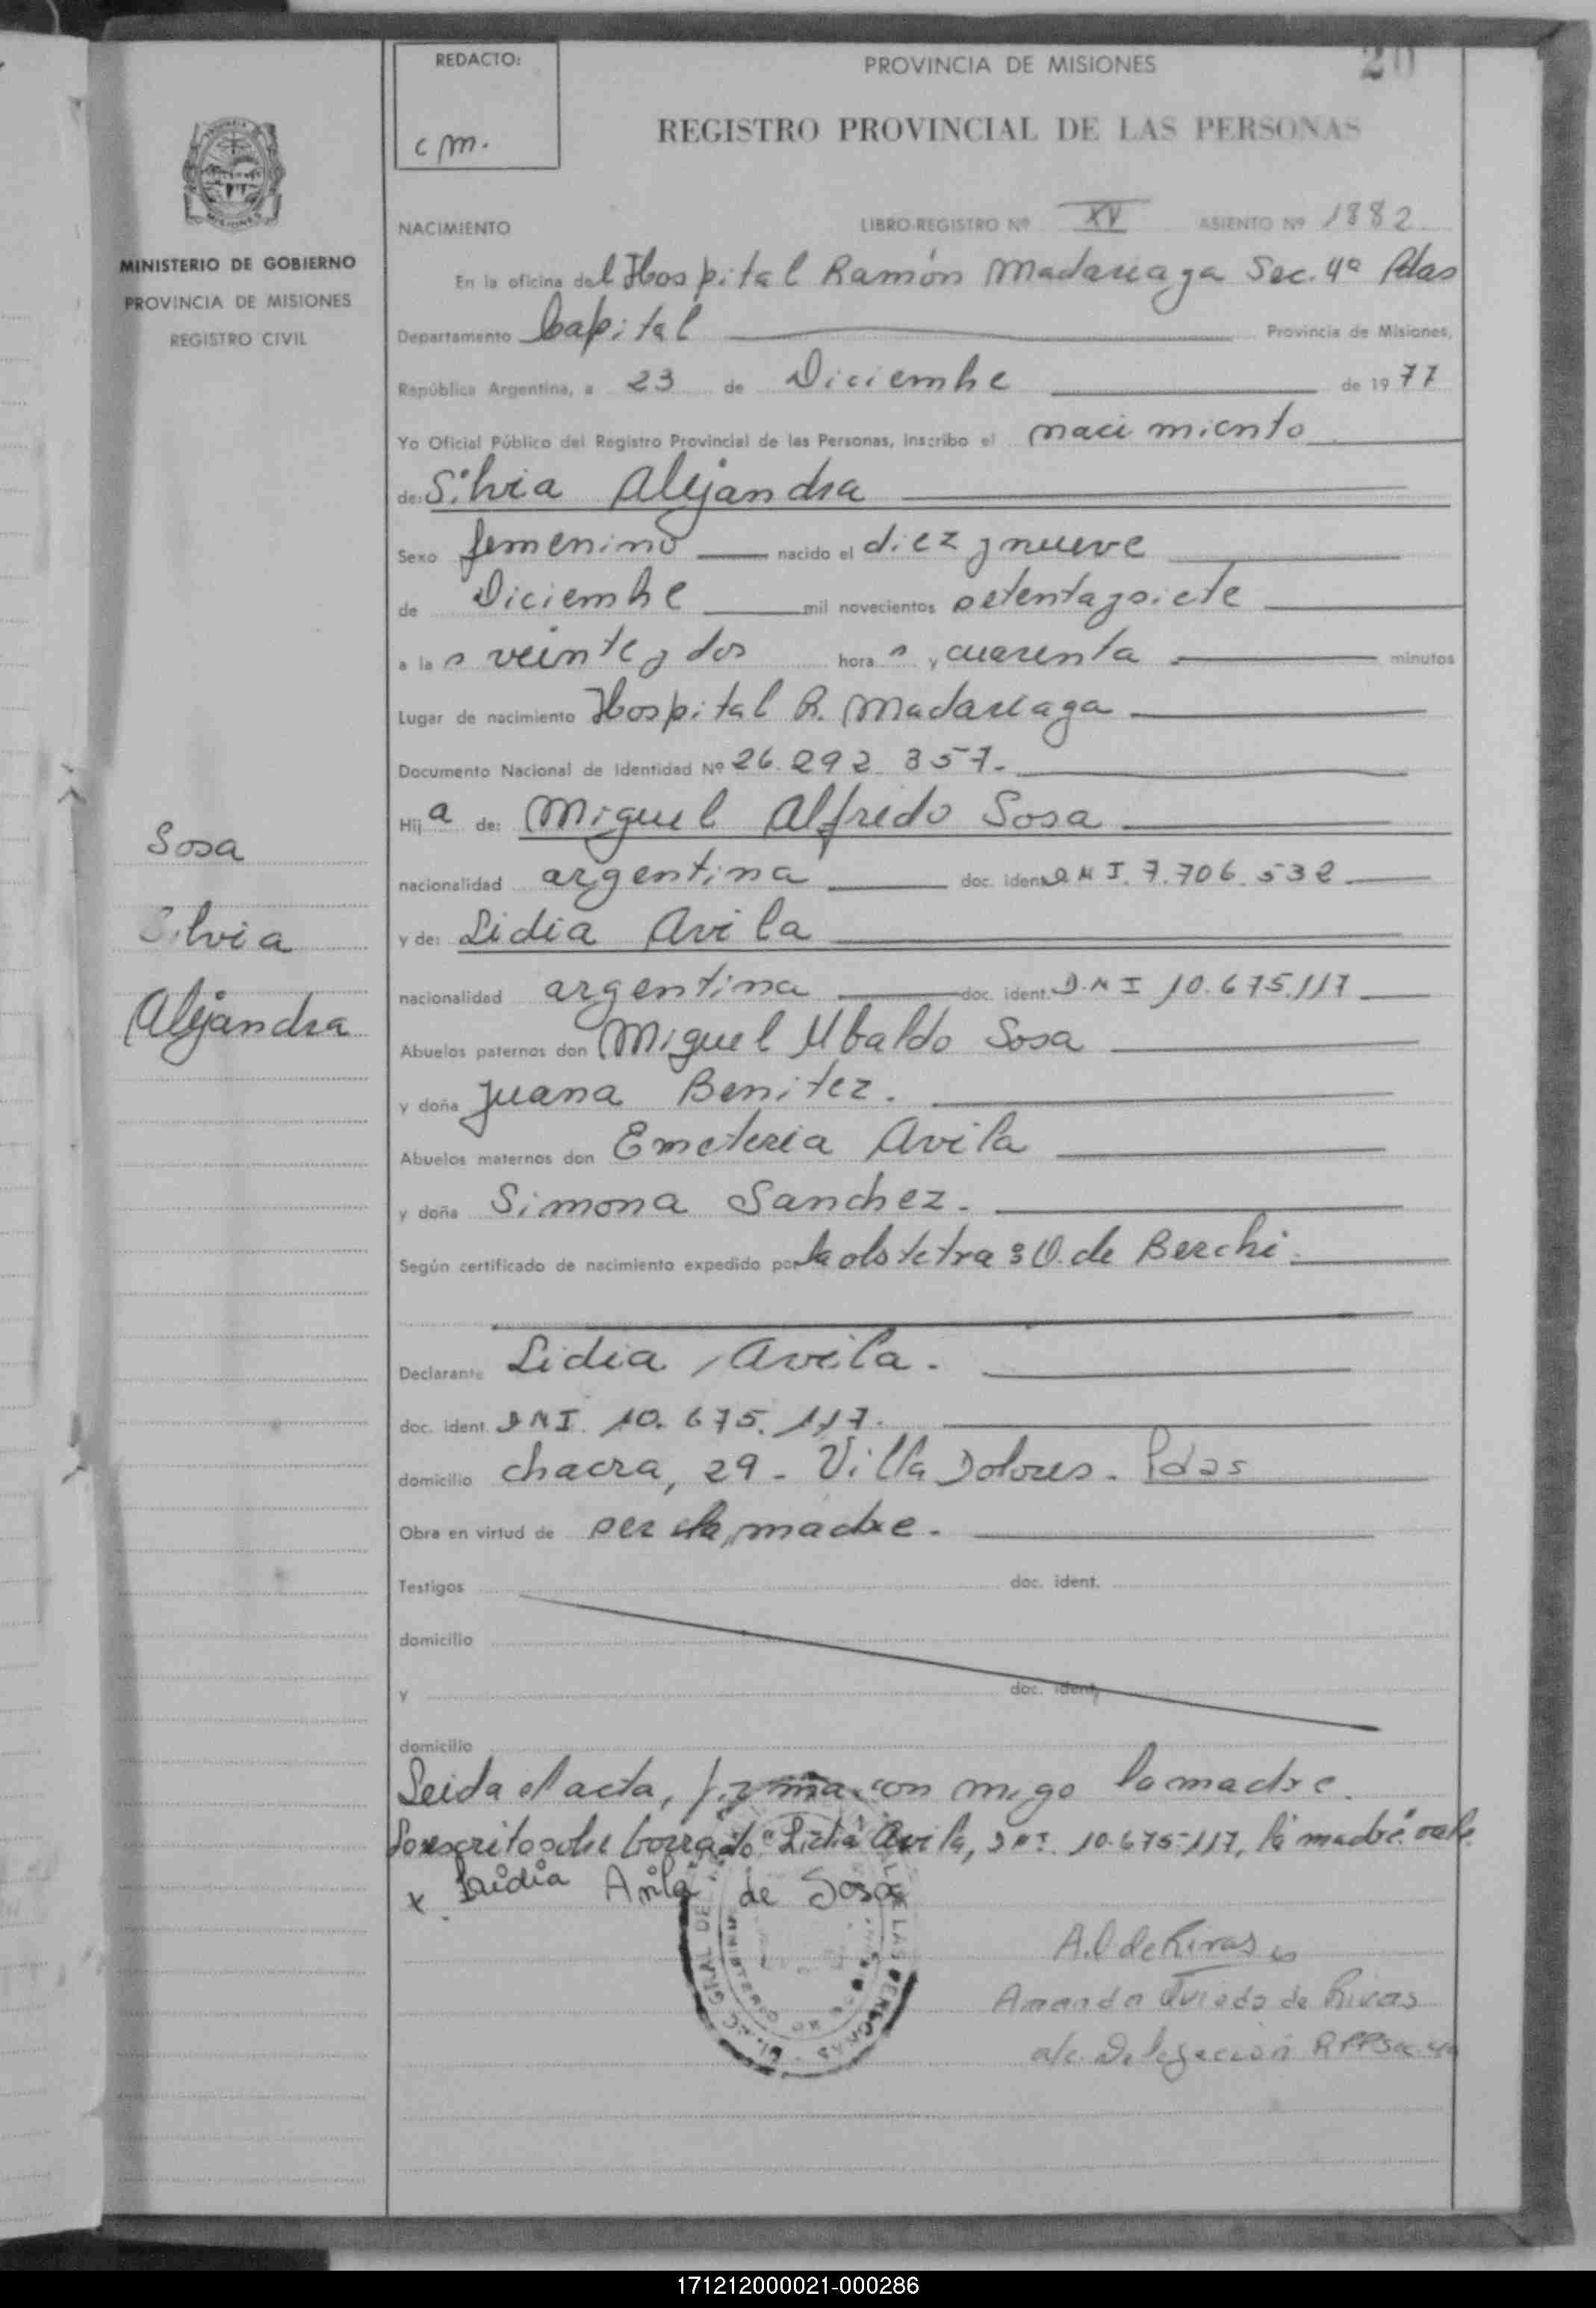 REDACTO:
c m.
PROVINCIA DE MISIONES
20
REGISTRO PROVINCIAL DE LAS PERSONAS
NACIMIENTO
LIBRO-REGISTRO Nº XV ASIENTO Nº 1882
MINISTERIO DE GOBIERNO
PROVINCIA DE MISIONES
REGISTRO CIVIL
En la oficina del Hospital Ramón Madariaga Sec. 4ª Pdas
Departamento Capital Provincia de Misiones,
República Argentina, a 23 de Diciembre de 1977
Yo Oficial Público del Registro Provincial de las Personas, inscribo el nacimiento
de: Silvia Alejandra
Sexo femenino nacido el diez y nueve
de Diciembre mil novecientos setenta y siete
a las veinte y dos horas y cuarenta minutos
Lugar de nacimiento Hospital R. Madariaga
Documento Nacional de Identidad Nº 26.292.357.
Hija de: Miguel Alfredo Sosa
nacionalidad argentina doc. ident. D N I. 7.706.532
y de: Lidia Avila
nacionalidad argentina doc. ident. D.N I 10.675.117
Abuelos paternos don Miguel Ubaldo Sosa
y doña Juana Benitez.
Abuelos maternos don Emeteria Avila
y doña Simona Sanchez.
Según certificado de nacimiento expedido por la obstetra de Berchi.
Declarante Lidia Avila.
doc. ident. D N I. 10.675.117.
domicilio chacra, 29 - Villa Dolores - Pdas
Obra en virtud de ser la madre.
Testigos doc. ident.
domicilio
y doc. ident.
domicilio
Leida el acta, firma con migo la madre.
Sobrescrito sobre borrado "Lidia Avila, D N I. 10.675.117, la madre" vale.
x Lidia Avila de Sosa
A.O de Rivas
Amanda Oviedo de Rivas
a/c. Delegacion RPPSec 4a
Sosa
Silvia
Alejandra
171212000021-000286